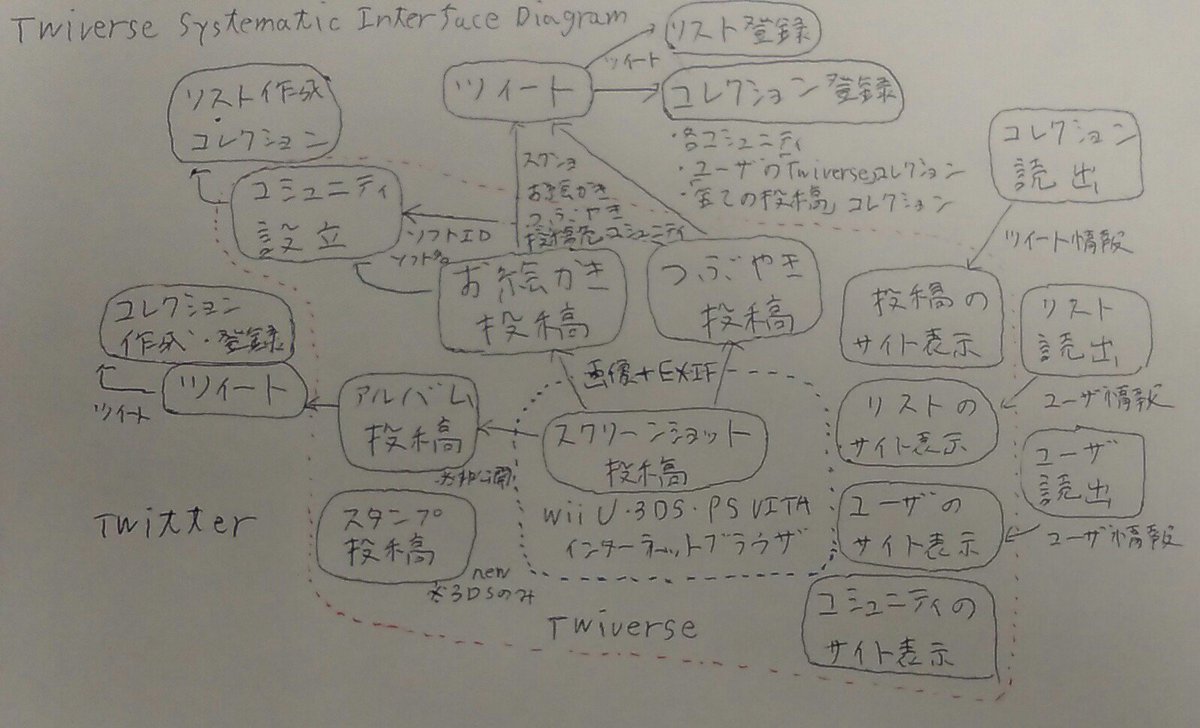 Twiverse Systematic Interface Diagram
リスト登録
ツイート
ツイート
コレクション登録
リスト作成
・コレクション
・各コミュニティ
・ユーザの「Twiverse」コレクション
・「全ての投稿」コレクション
コレクション
読出
コミュニティ
設立
スクショ
お絵かき
つぶやき
投稿先コミュニティ
ソフトID
ソフト名
ツイート情報
お絵かき
投稿
つぶやき
投稿
投稿の
サイト表示
リスト
読出
コレクション
作成・登録
ツイート
ツイート
画像+EXIF
アルバム
投稿
※非公開
スクリーンショット
投稿
リストの
サイト表示
ユーザ情報
ユーザ
読出
Wii U・3DS・PS VITA
インターネットブラウザ
ユーザの
サイト表示
ユーザ情報
Twitter
スタンプ
投稿
new
※3DSのみ
コミュニティの
サイト表示
Twiverse